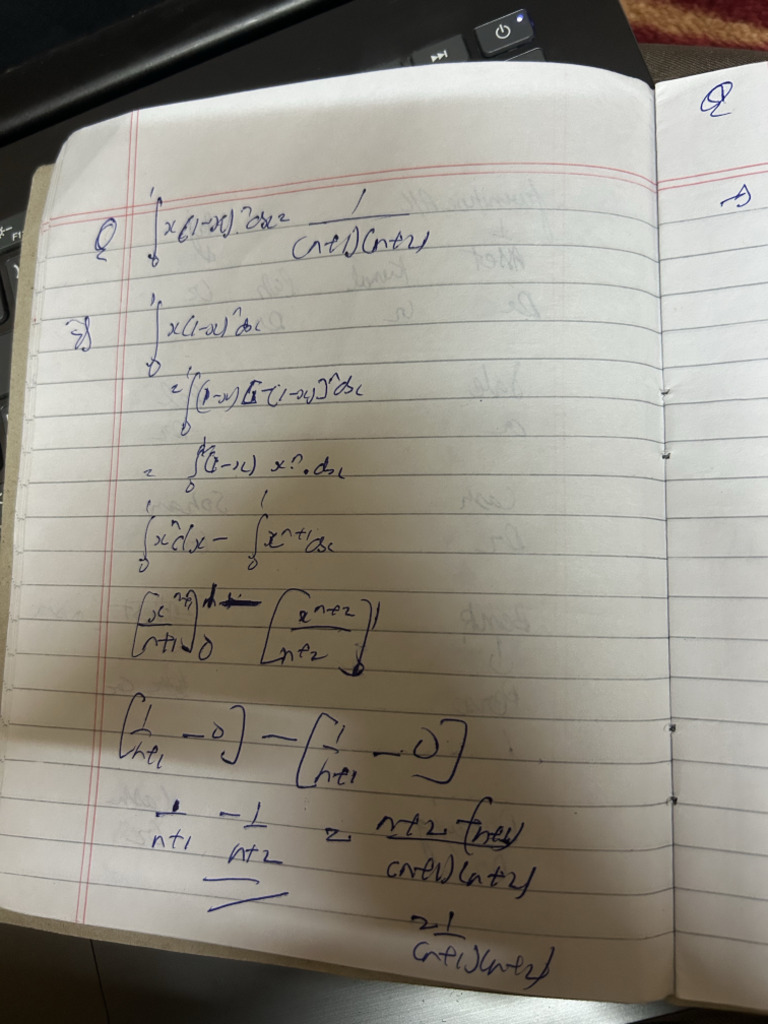 Q ∫₀¹ x(1-x)ⁿ dx = 1/((n+1)(n+2))
⇒ ∫₀¹ x(1-x)ⁿ dx
= ∫₀¹ (1-x) [1-(1-x)]ⁿ dx
= ∫₀¹ (1-x) xⁿ . dx
∫₀¹ xⁿ dx - ∫₀¹ xⁿ⁺¹ dx
[xⁿ⁺¹/(n+1)]₀¹ - [xⁿ⁺²/(n+2)]₀¹
[1/(n+1) - 0] - [1/(n+1) - 0]
1/(n+1) - 1/(n+2) = (n+2-(n+1))/((n+1)(n+2))
= 1/((n+1)(n+2))
Q
⇒
F1